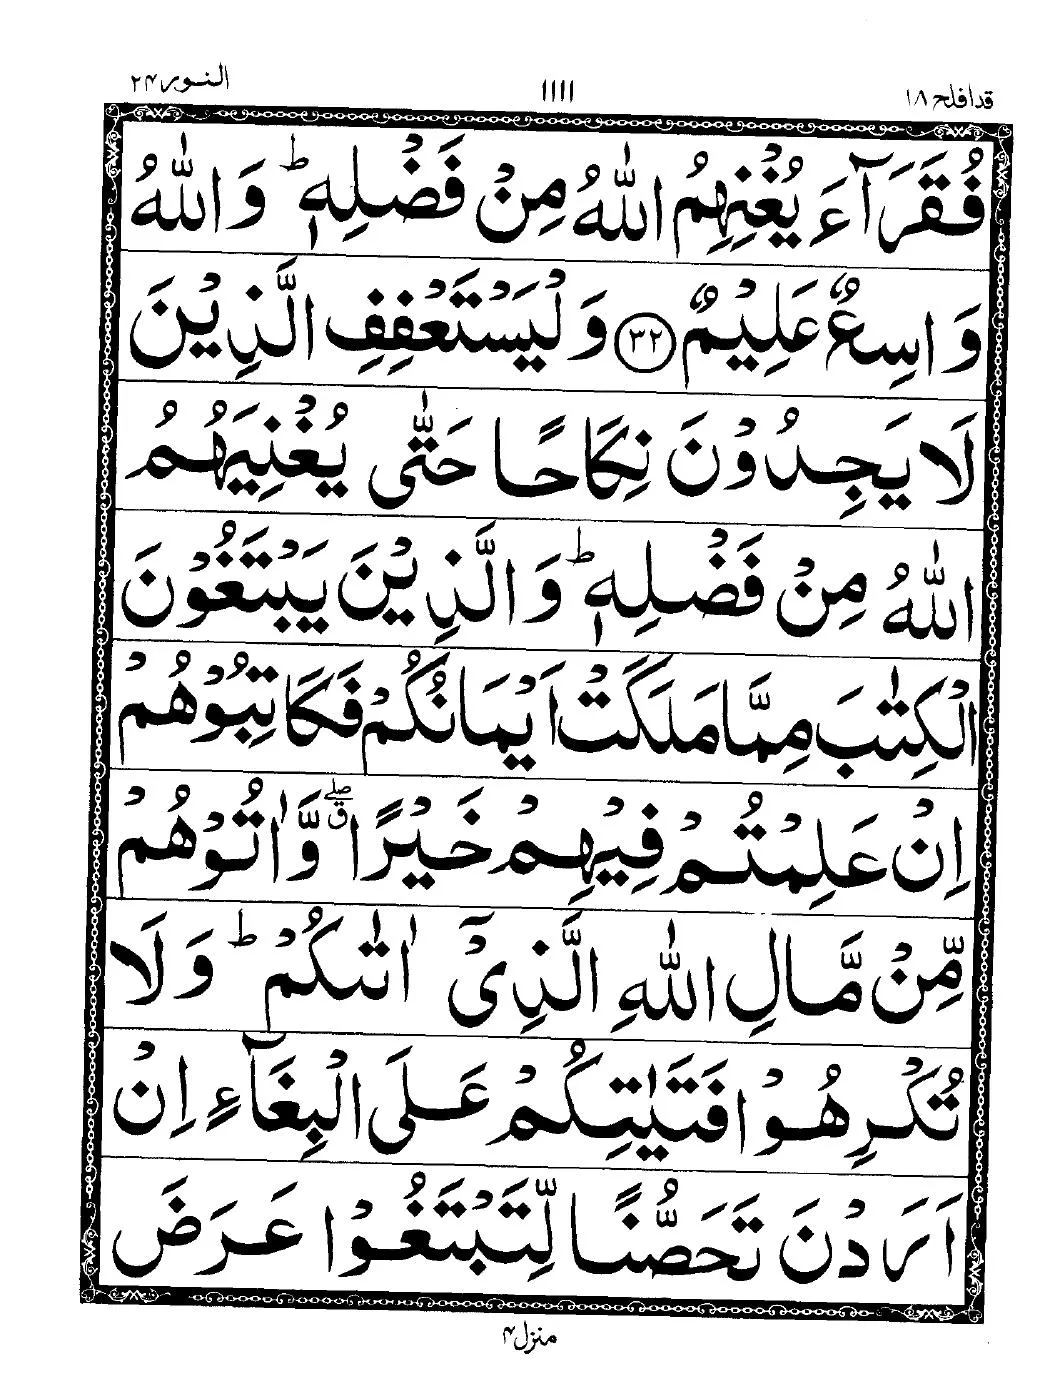 النور ۲۴
۱۱۱۱
قد افلح ۱۸
فُقَرَآءَ يُغْنِهِمُ اللّٰهُ مِنْ فَضْلِهٖ ؕ وَاللّٰهُ
وَاسِعٌ عَلِيْمٌ ﴿۳۲﴾ وَلْيَسْتَعْفِفِ الَّذِيْنَ
لَا يَجِدُوْنَ نِكَاحًا حَتّٰى يُغْنِيَهُمُ
اللّٰهُ مِنْ فَضْلِهٖ ؕ وَالَّذِيْنَ يَبْتَغُوْنَ
الْكِتٰبَ مِمَّا مَلَكَتْ اَيْمَانُكُمْ فَكَاتِبُوْهُمْ
اِنْ عَلِمْتُمْ فِيْهِمْ خَيْرًا ۖۗ وَّاٰتُوْهُمْ
مِّنْ مَّالِ اللّٰهِ الَّذِيْٓ اٰتٰىكُمْ ؕ وَلَا
تُكْرِهُوْا فَتَيٰتِكُمْ عَلَى الْبِغَآءِ اِنْ
اَرَدْنَ تَحَصُّنًا لِّتَبْتَغُوْا عَرَضَ
منزل ۴